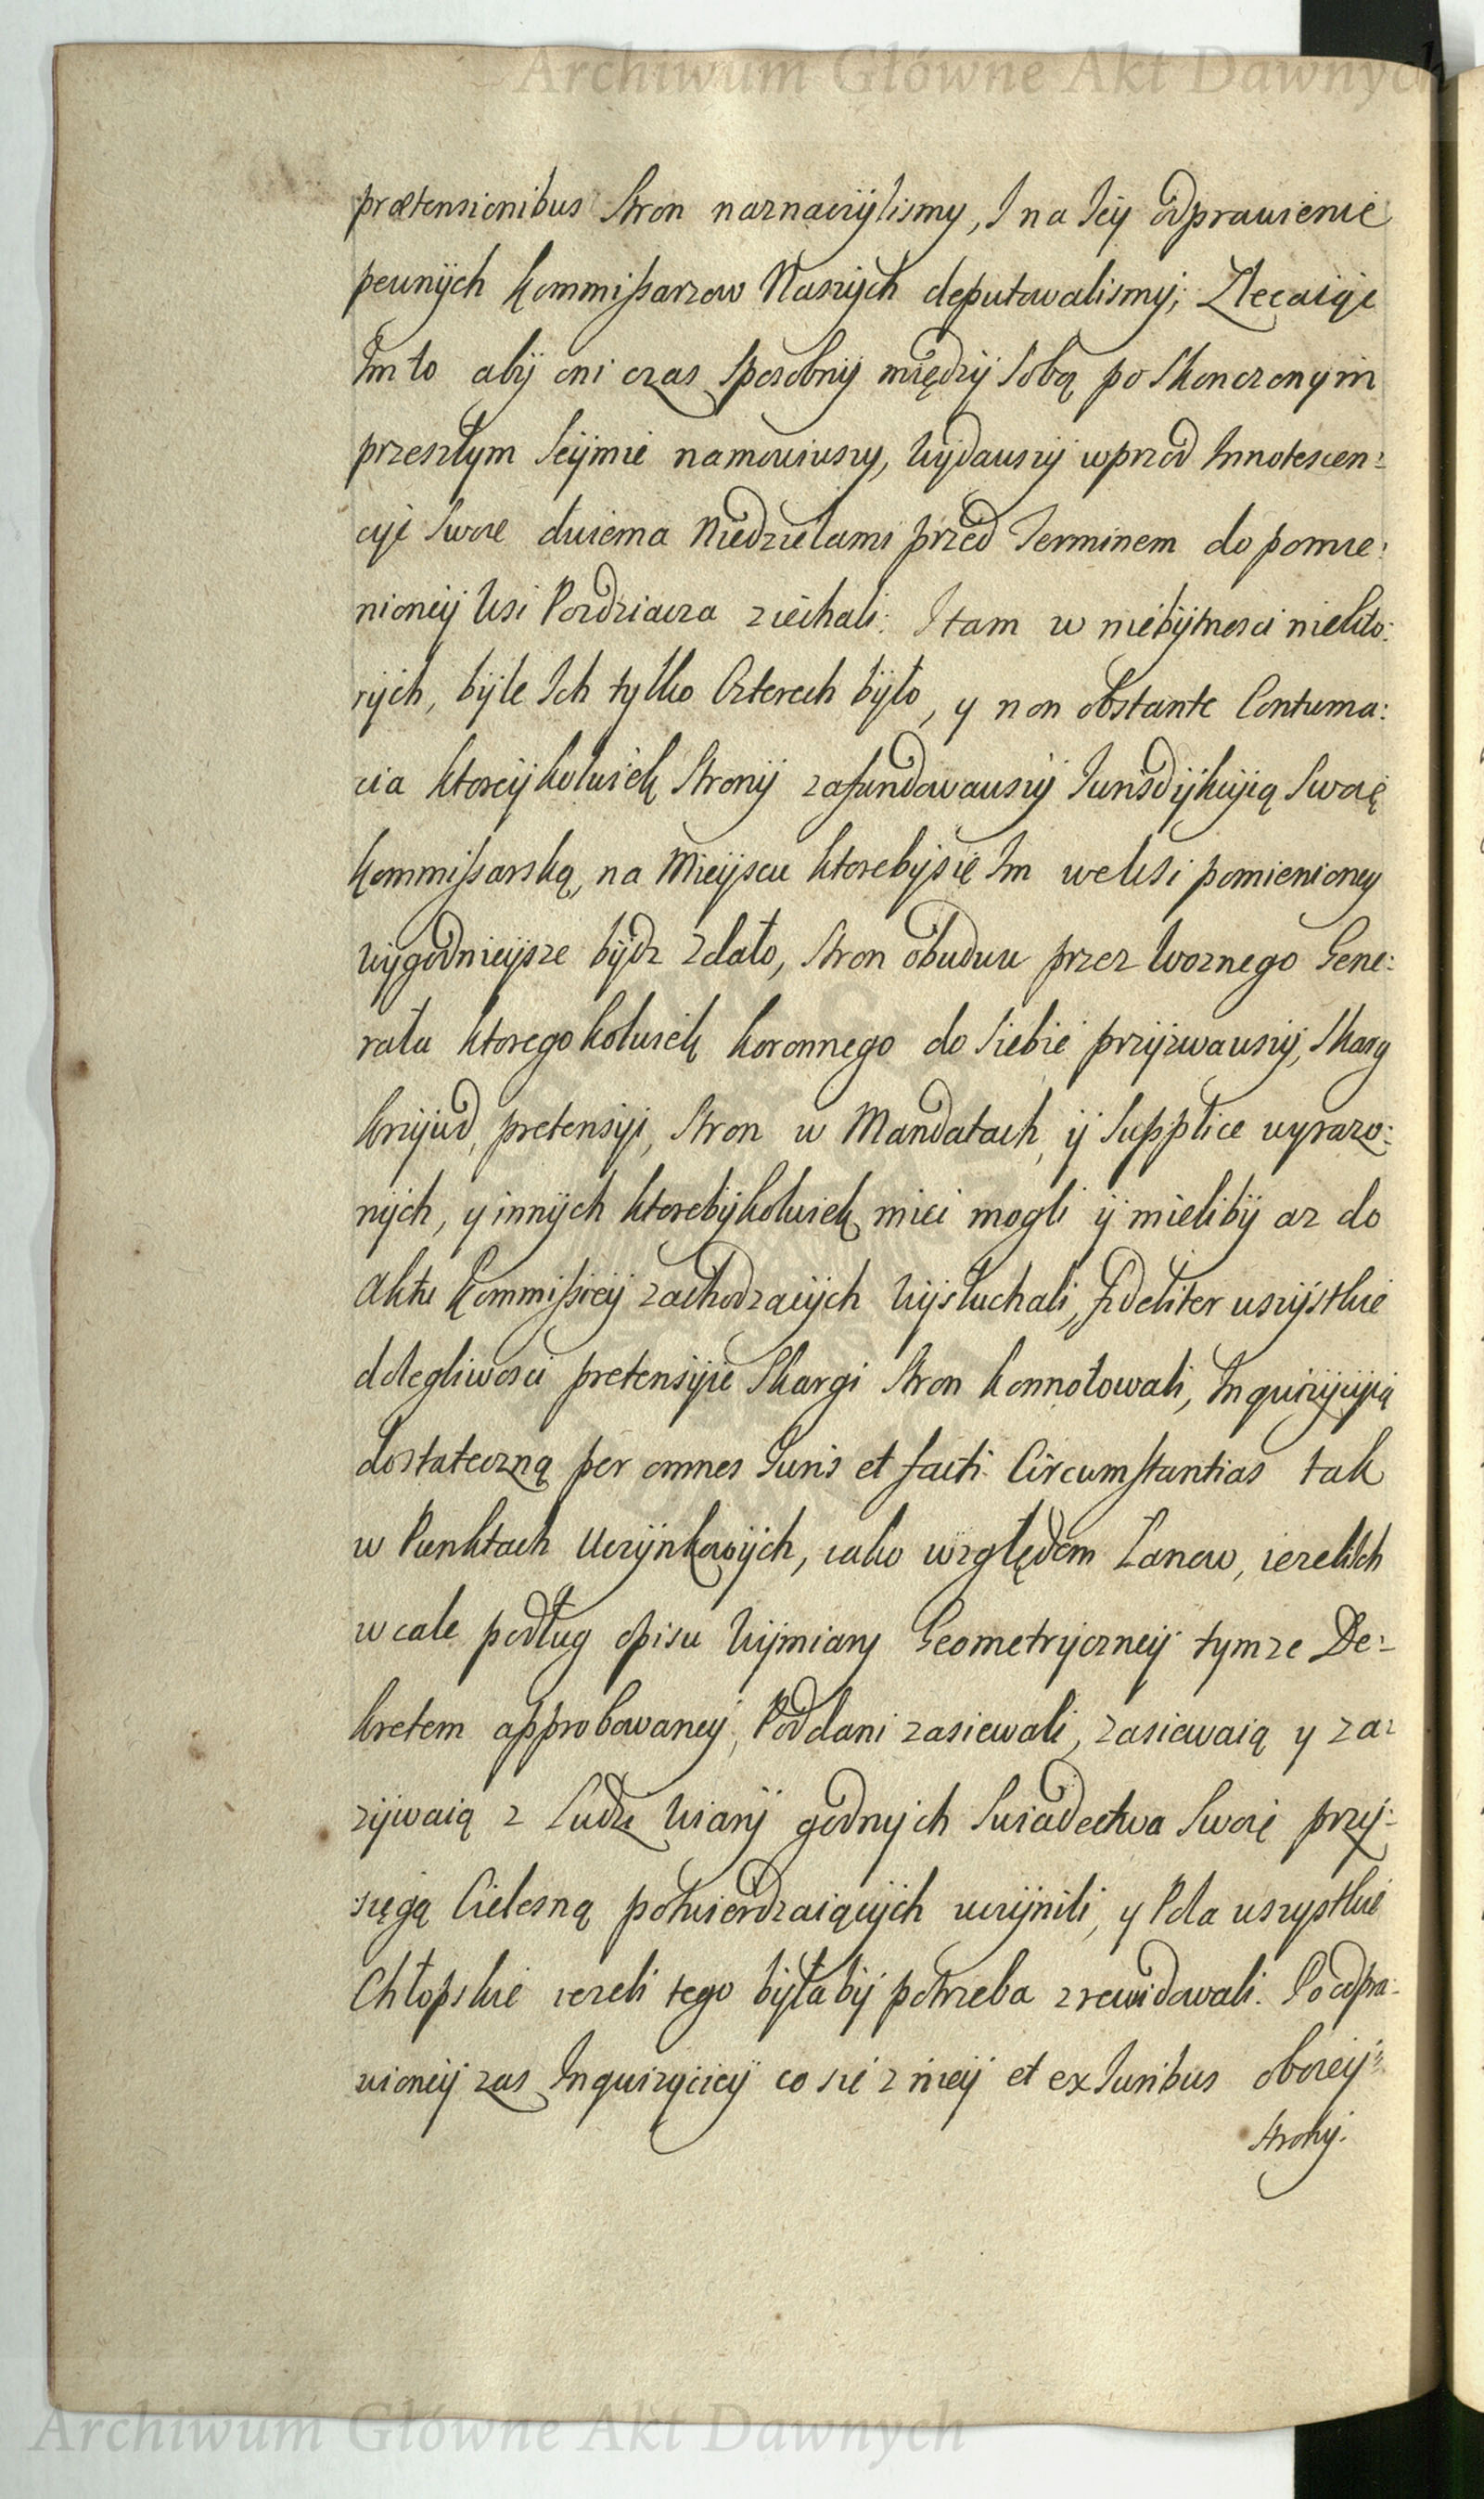 Archiwum Główne Akt Dawnych
prætensionibus Stron naznaczÿlismy, I na Ieÿ odprawienie
pewnÿch Kommissarzow Naszÿch deputowalismÿ; Zlecaiąc
Im to abÿ oni czas sposobnÿ międzÿ Sobą po Skonczonÿm
przeszłym Seÿmie namowiwszy, wÿdawszÿ wprzod Innotescen-
cÿe Swoie dwiema Niedzielami przed Terminem do pomie-
nioneÿ Wsi Pozdziacza ziechali: I tam w niebÿtnosci niekto-
rÿch, bÿle Ich tylko Czterech bÿło, y non obstante Contuma-
cia ktoreÿkolwiek Stronÿ zafundowawszÿ Iurisdÿkcÿią Swoię
Kommissarską, na Mieÿscu ktorebÿ się Im we Wsi pomienioney
wÿgodnieÿsze bÿdz zdało, Stron obudwu przez Woznego Gene-
rała ktoregokolwiek koronnego do Siebie przÿzwawszÿ, Skarg
krzÿwd, pretensÿi, Stron w Mandatach, ÿ Supplice wyrazo-
nÿch, y innÿch ktorebÿkolwiek mieć mogli ÿ mielibÿ az do
Aktu Kommissieÿ zachodzącÿch wÿsłuchali, fideliter wszÿstkie
dolegliwosci pretensÿie Skargi Stron konnotowali, Inquizÿcÿią
dostateczną per omnes Iuris et facti Circumstantias tak
w Punktach Uczÿnkowÿch, iako względem Łanow, iezeli Ich
wcale podług opisu Wÿmiary Geometrÿczneÿ tymze De-
kretem approbowaneÿ, Poddani zasiewali, zasiewaią y za-
zÿwaią z Ludzi Wiarÿ godnÿch Swiadectwa Swoie przÿ-
sięgą Cielesną potwierdzaiącÿch uczÿnili, y Pola wszystkie
Chłopskie iezeli tego bÿłabÿ potrzeba zrewidowali. Po odpra-
wioneÿ zas Inquizÿcieÿ co się z nieÿ et ex Iuribus oboieÿ
Stronÿ.
Archiwum Główne Akt Dawnych